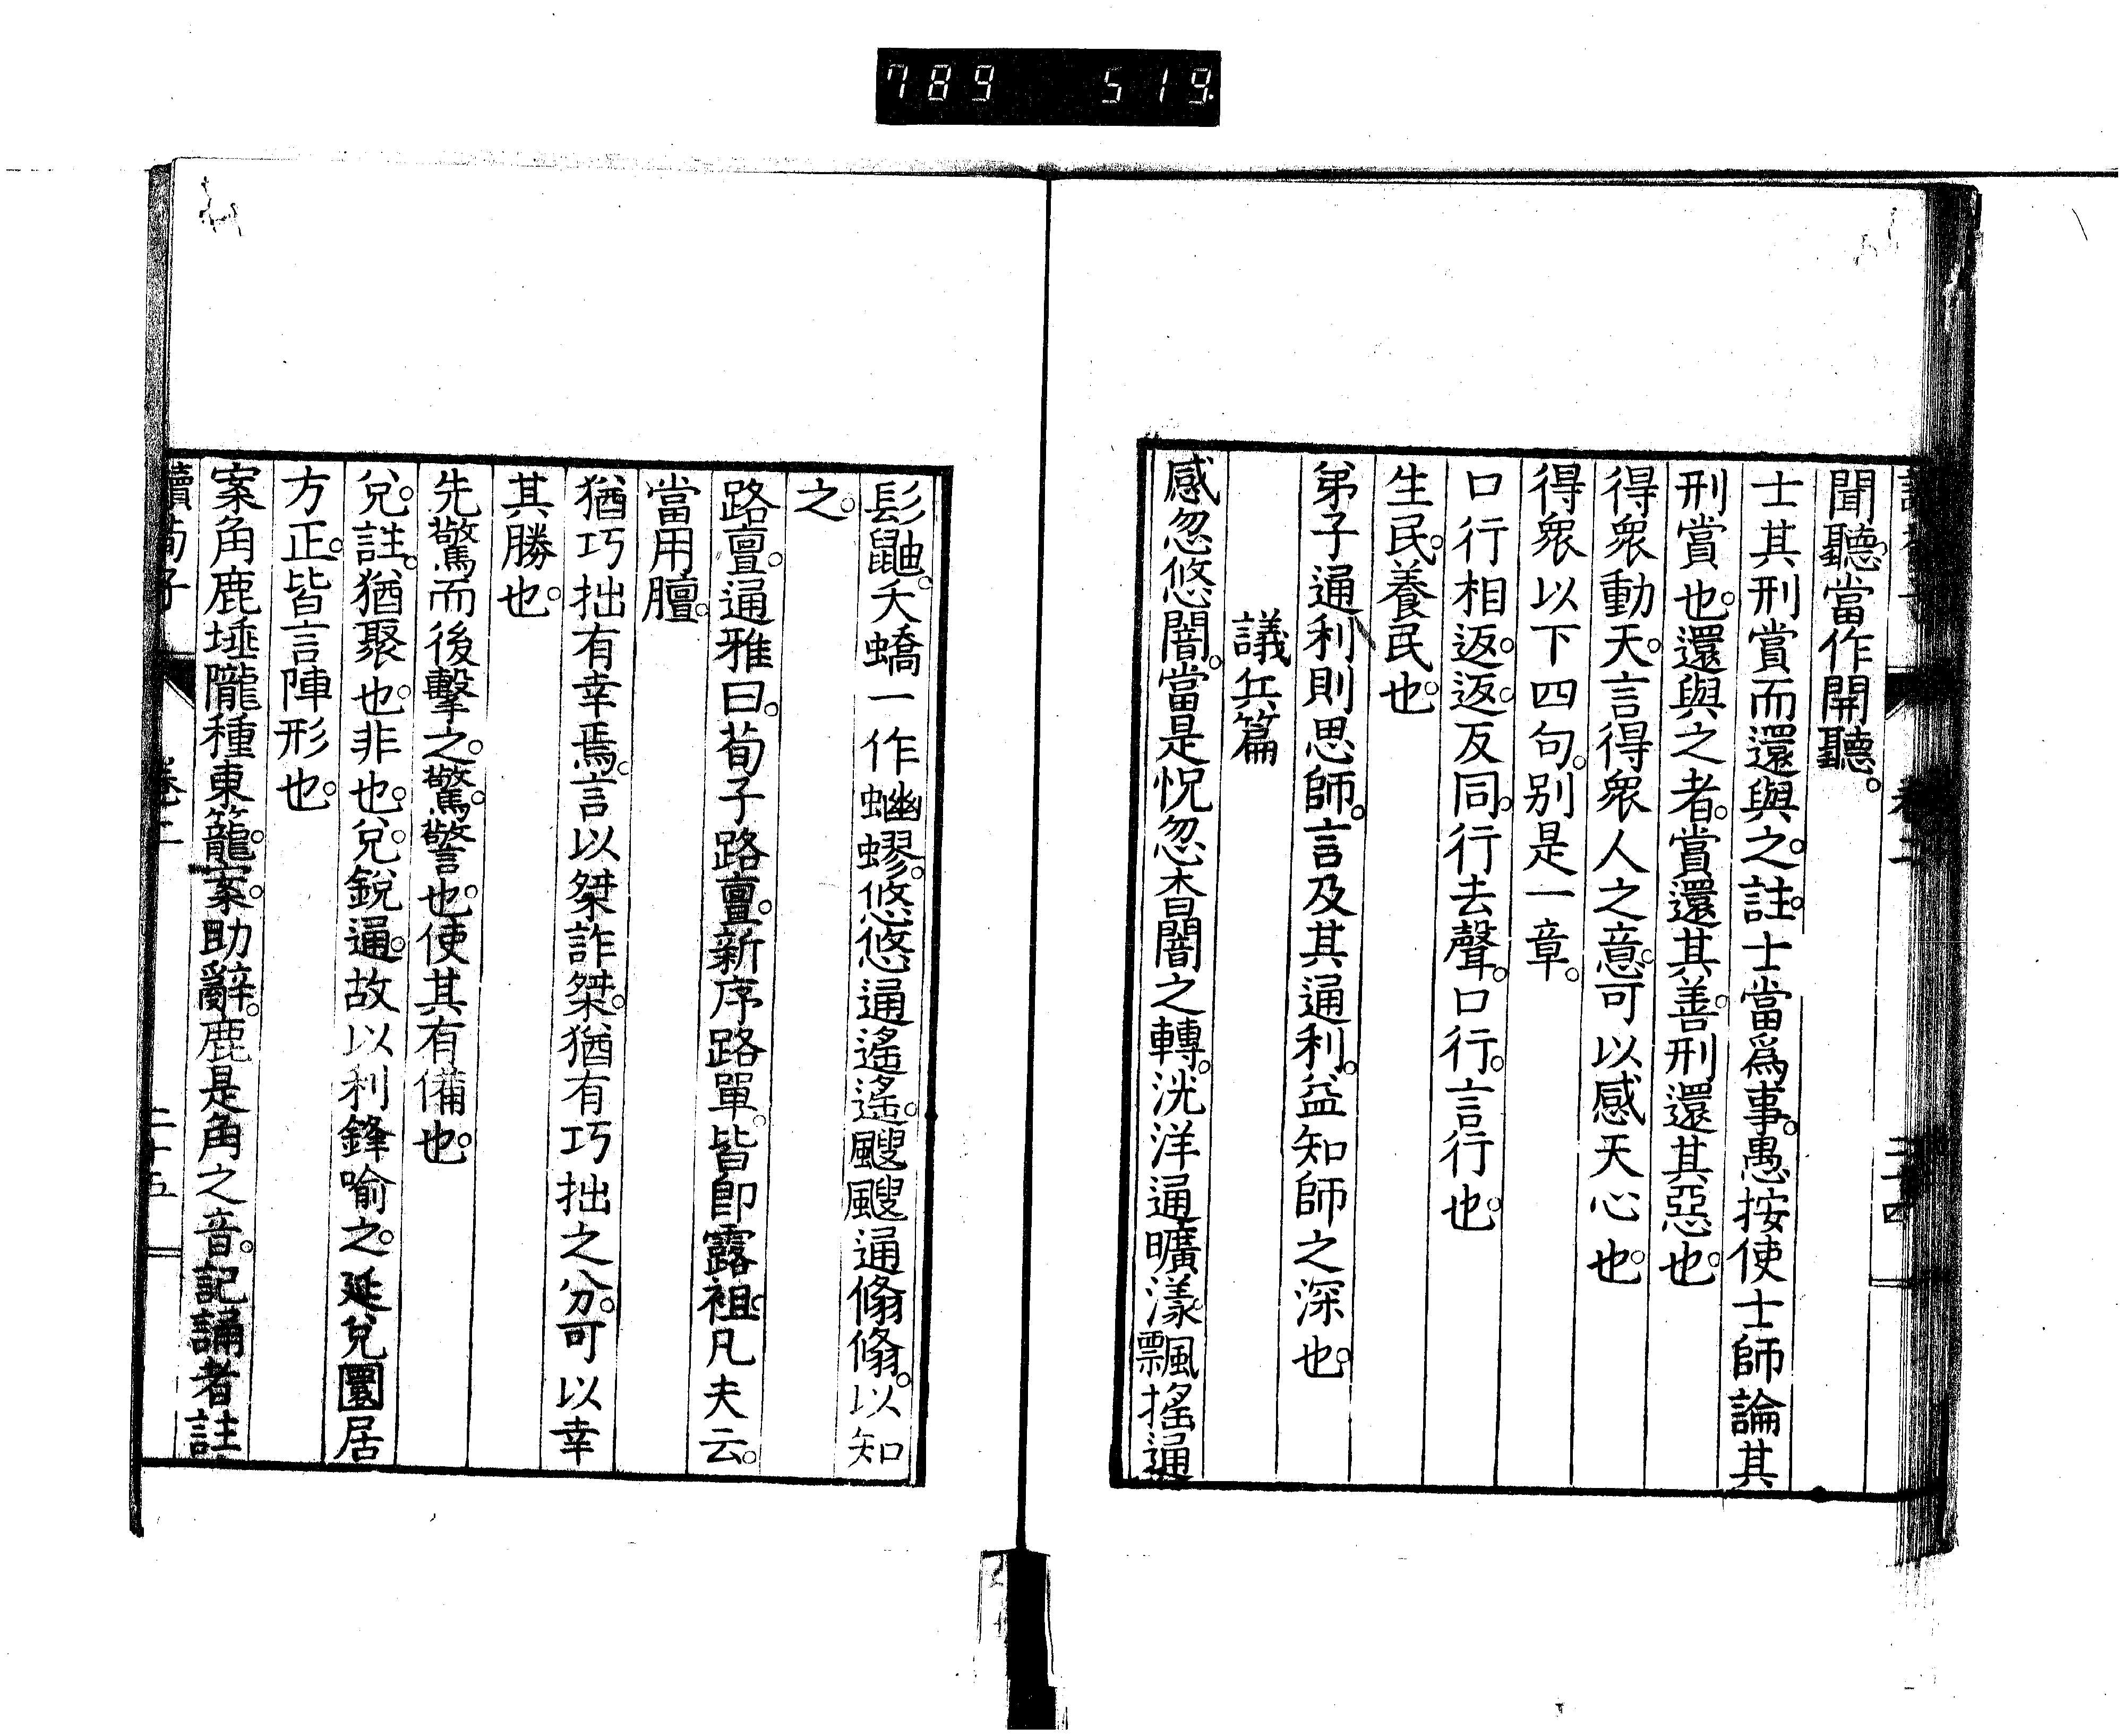 789 519
聞聽。當作開聽。
士其刑賞而還與之。註。士當爲事。愚按使士師論其
刑賞也。還與之者。賞還其善。刑還其惡也。
得衆動天。言得衆人之意。可以感天心也。
得衆以下四句。別是一章。
口行相返。返反同。行去聲。口行。言行也。
生民。養民也。
弟子通利則思師。言及其通利。益知師之深也。
議兵篇
感忽悠闇。當是怳忽杳闇之轉。洸洋通曠漾。飄搖通
髟鼬。夭蟜一作蚴蟉。悠悠通遙遙。颼颼通翛翛。以知
之。
路亶。通雅曰。荀子路亶。新序路單。皆卽露袒。凡夫云。
當用膻。
猶巧拙有幸焉。言以桀詐桀。猶有巧拙之分。可以幸
其勝也。
先驚而後擊之。驚。警也。使其有備也。
兌。註。猶聚也。非也。兌銳通。故以利鋒喻之。延兌圜居
方正。皆言陣形也。
案角鹿埵隴種東籠。案。助辭。鹿是角之音。記誦者註
讀荀子 卷二 二十五